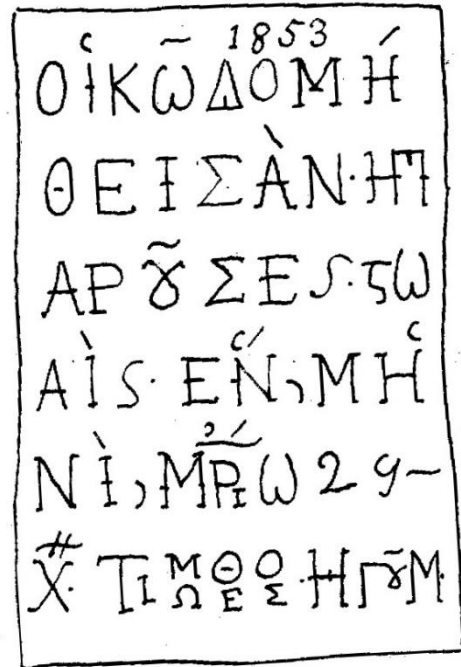 1853
ΟἱΚῶΔΟΜΉ
ΘΕΙΣᾺΝ·ΗΠ
ΑΡȣ͂ΣΕϚ·ϛω
ΑῚϚ· ΕΝ,ΜΗ
ΝῚ,ΜΡΙω 29-
Χ· ΤΙΜΩΘΕΟΣ·ΗΓȣ͂Μ·